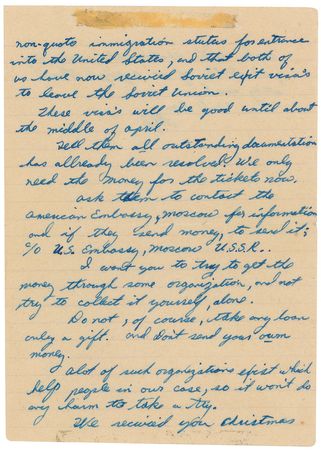 non-quoto immigration status for entrance
into the United States, and that both of
us have now recivied Soviet exit visa's
to leave the Soviet Union.
These visa's will be good until about
the middle of april.
Tell them all outstanding documentation
has allready been resolved. We only
need the money for the tickets now.
ask them to contact the
american Embassy, Moscow for information
and if they send money, to send it;
c/o U.S. Embassy, Moscow U.S.S.R..
I want you to try to get the
money through some organization, and not
try to collect it yourself, alone.
Do not, of course, take any loan
only a gift. and don't send your own
money.
A lot of such organizations exist which
help people in our case, so it won't do
any harm to take a try.
We recivied your Christmas